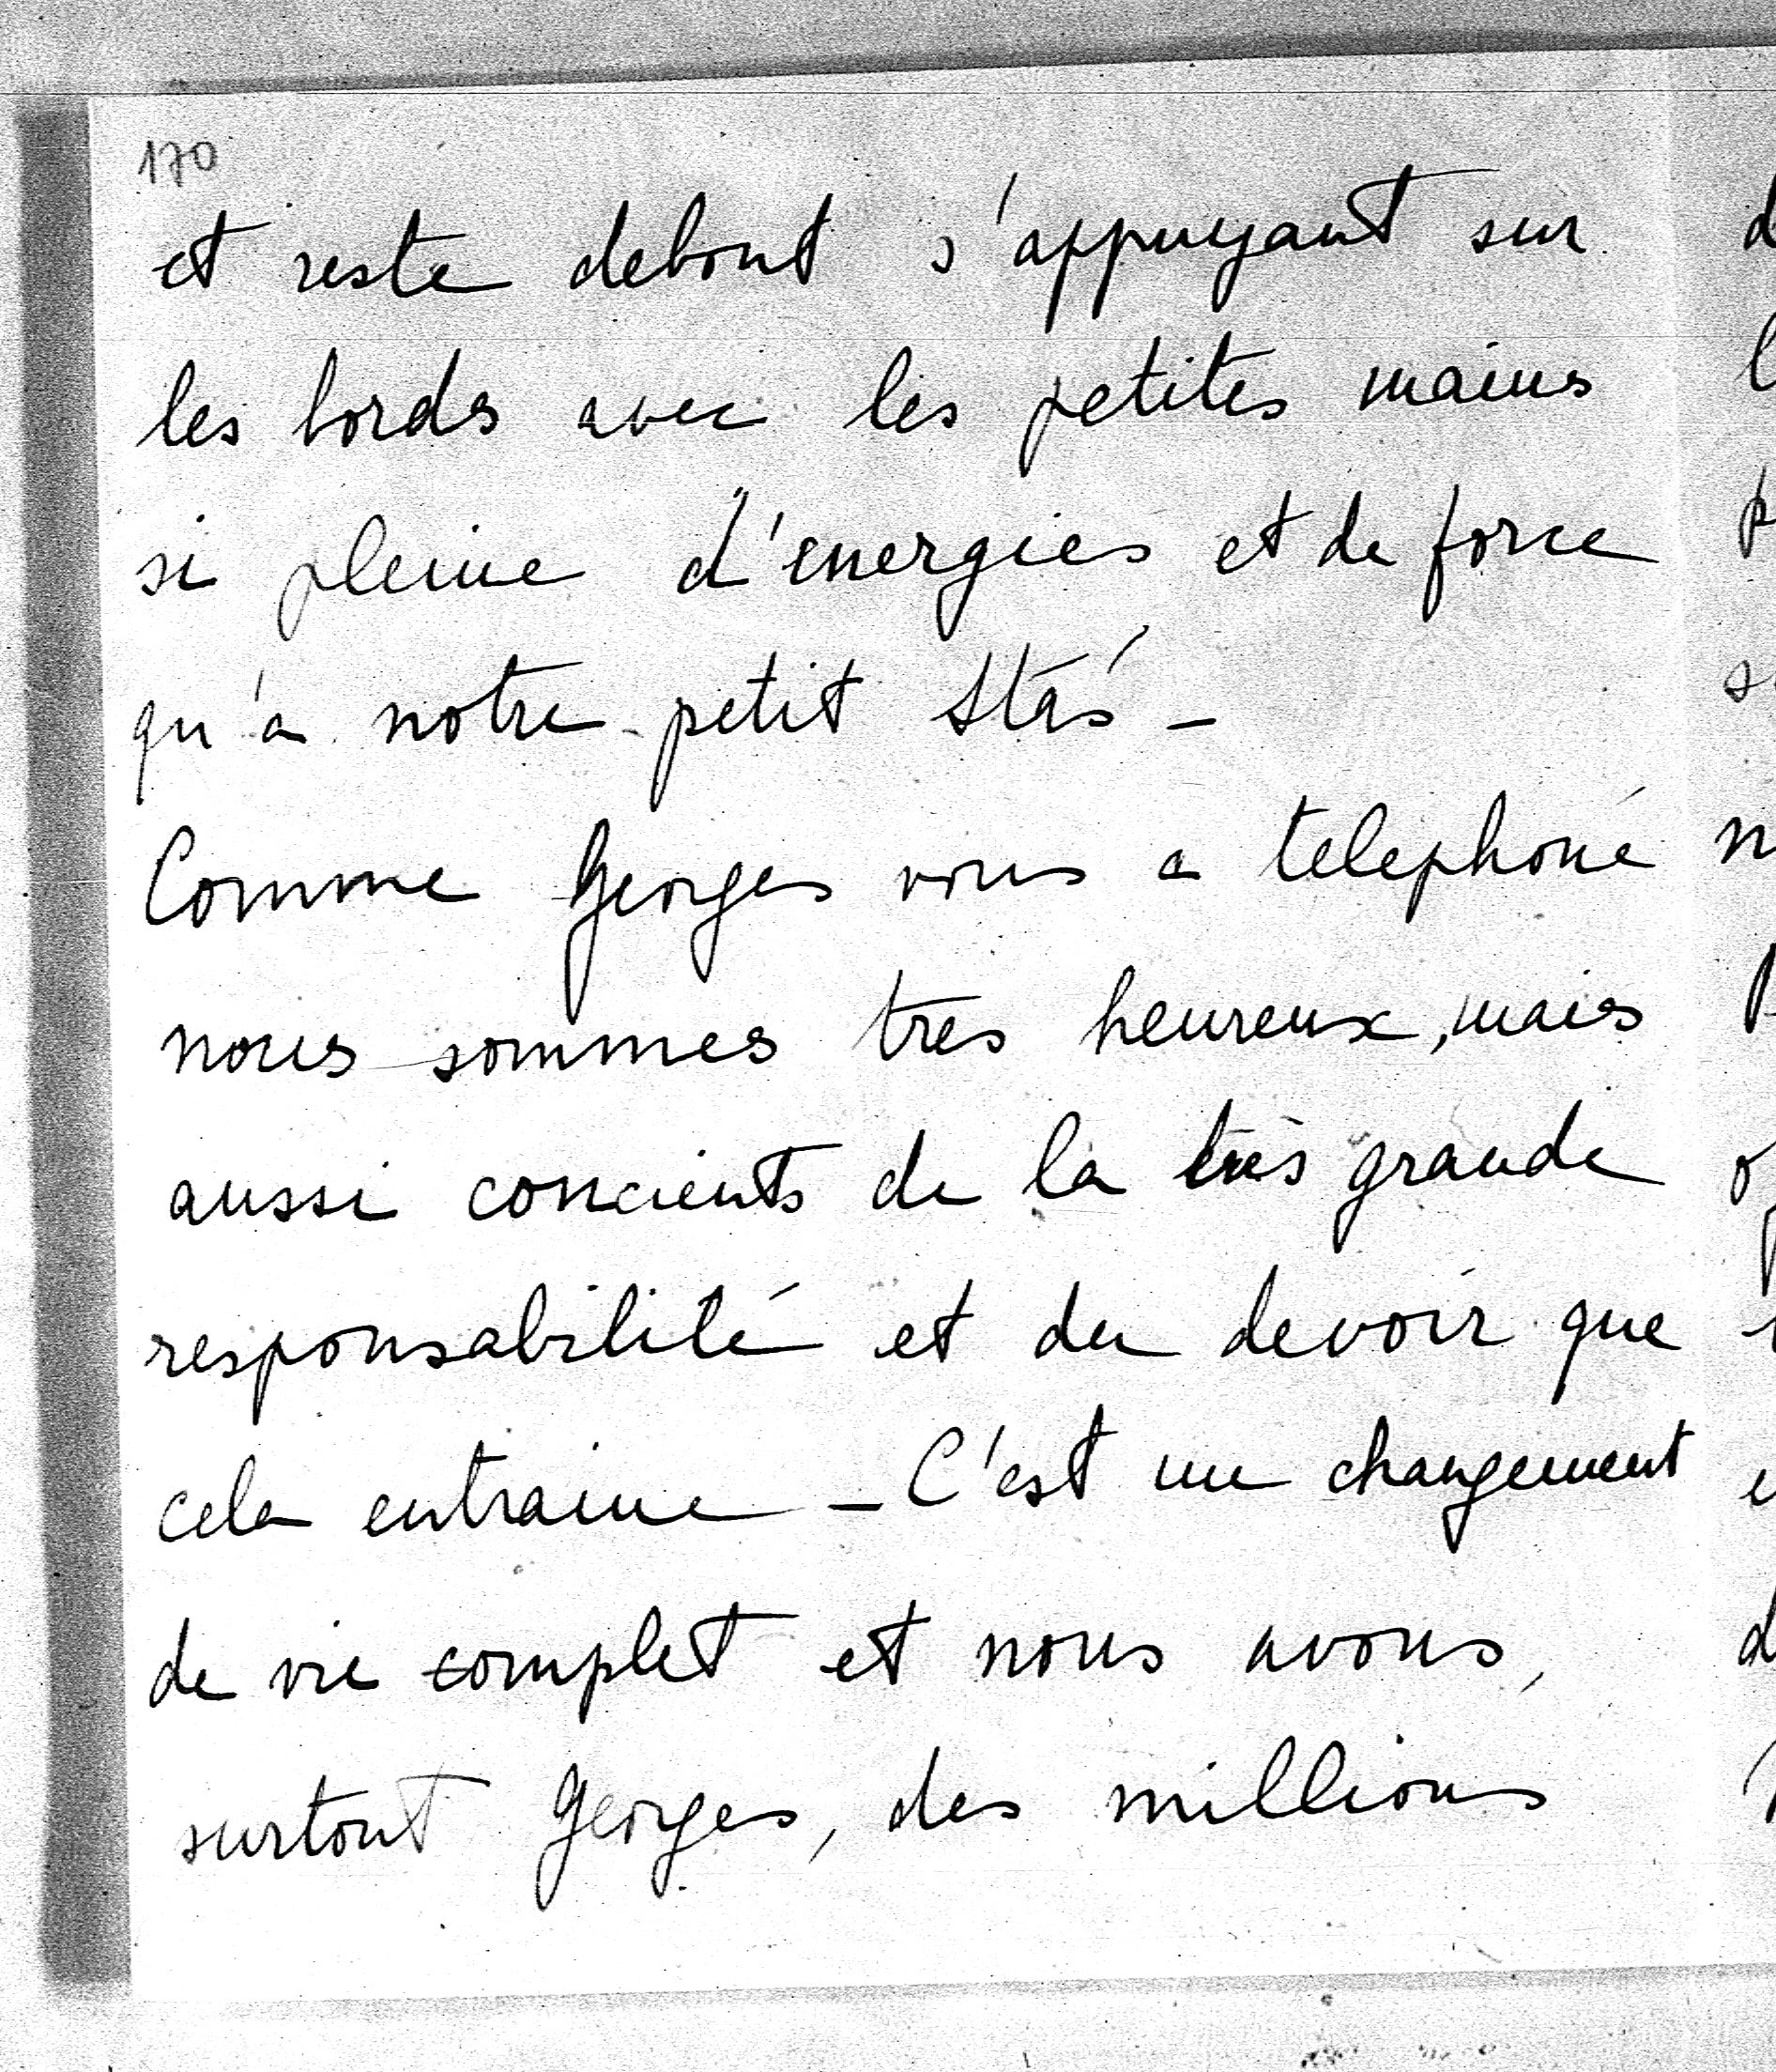 170
et reste debout s'appuyant sur
les bords avec les petites mains
si pleine d'energies et de force
qu'a notre petit Staś –
Comme Georges vous a telephoné
nous sommes tres heureux, mais
aussi concients de la très grande
responsabilité et du devoir que
cela entraine – C'est un changement
de vie complet et nous avons,
surtout Georges, des millions